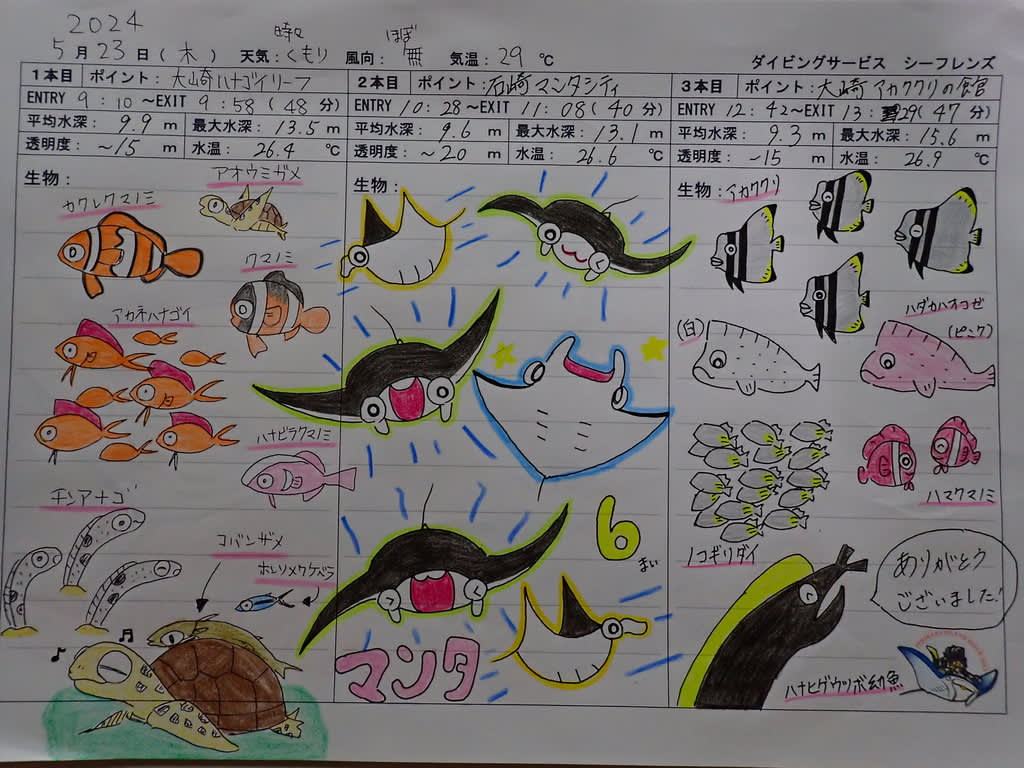 2024
5月23日(木) 天気:時々くもり 風向:ほぼ無 気温:29℃
ダイビングサービス シーフレンズ
1本目 ポイント:大崎ハナゴイリーフ
ENTRY 9:10~EXIT 9:58(48分)
平均水深: 9.9 m 最大水深: 13.5 m
透明度: ~15 m 水温: 26.4 ℃
生物:
アオウミガメ
カクレクマノミ
クマノミ
アカネハナゴイ
ハナビラクマノミ
チンアナゴ
コバンザメ
ホソソメワケベラ
2本目 ポイント:石崎マンタシティ
ENTRY 10:28~EXIT 11:08(40分)
平均水深: 9.6 m 最大水深: 13.1 m
透明度: ~20 m 水温: 26.6 ℃
生物:
6まい
マンタ
3本目 ポイント:大崎アカククリの館
ENTRY 12:42~EXIT 13:29(47分)
平均水深: 9.3 m 最大水深: 15.6 m
透明度: ~15 m 水温: 26.9 ℃
生物:アカククリ
ハダカハオコゼ
(白)
(ピンク)
ハマクマノミ
ノコギリダイ
ありがとう
ございました!
ハナヒゲウツボ幼魚